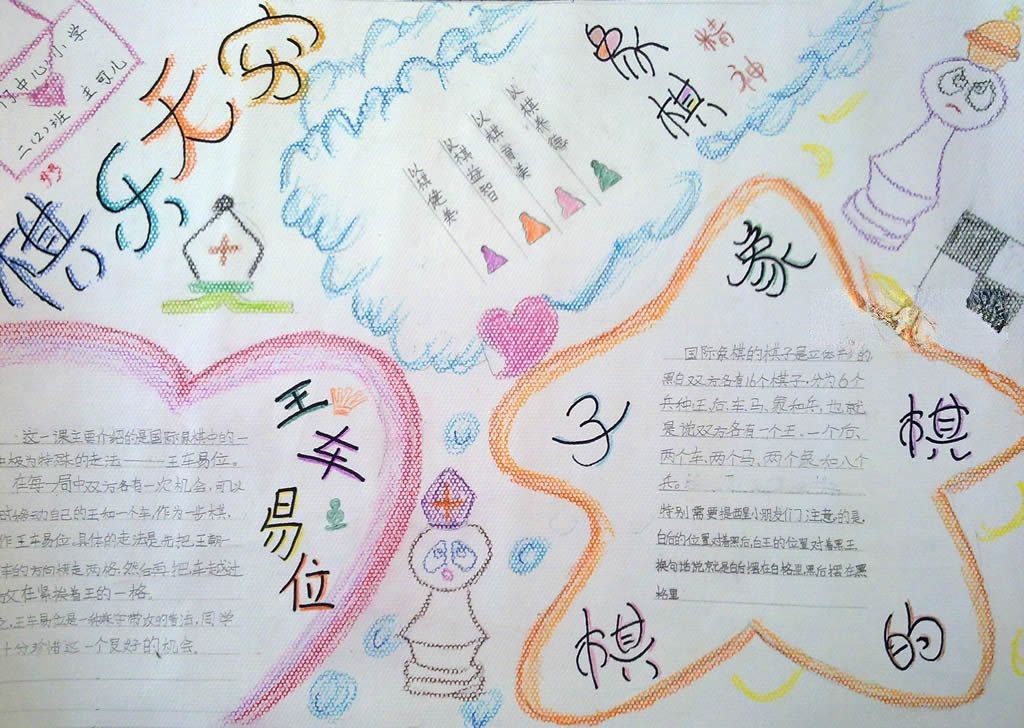 中心小学
王可儿
二(2)班
棋乐无穷
象棋
精神
以棋健美
以棋益智
以棋育美
以棋养德
王车易位
这一课主要介绍的是国际象棋中的一
极为特殊的走法———王车易位。
在每一局中双方各有一次机会,可以
移动自己的王和一个车,作为一步棋,
作王车易位。具体的走法是先把王朝一
车的方向横走两格,然后再把车越过
放在紧挨着王的一格。
王车易位是一种寓守带攻的着法,同学
十分珍惜这一个复好的机会。
象棋的棋子
国际象棋的棋子是立体形的
黑白双方各有16个棋子,分为6个
兵种王、后、车、马、象和兵,也就
是说双方各有一个王、一个后、
两个车、两个马、两个象和八个
兵。
特别需要提醒小朋友们注意的是,
白后的位置对着黑后,白王的位置对着黑王
换句话说就是白后摆在白格里,黑后摆在黑
格里